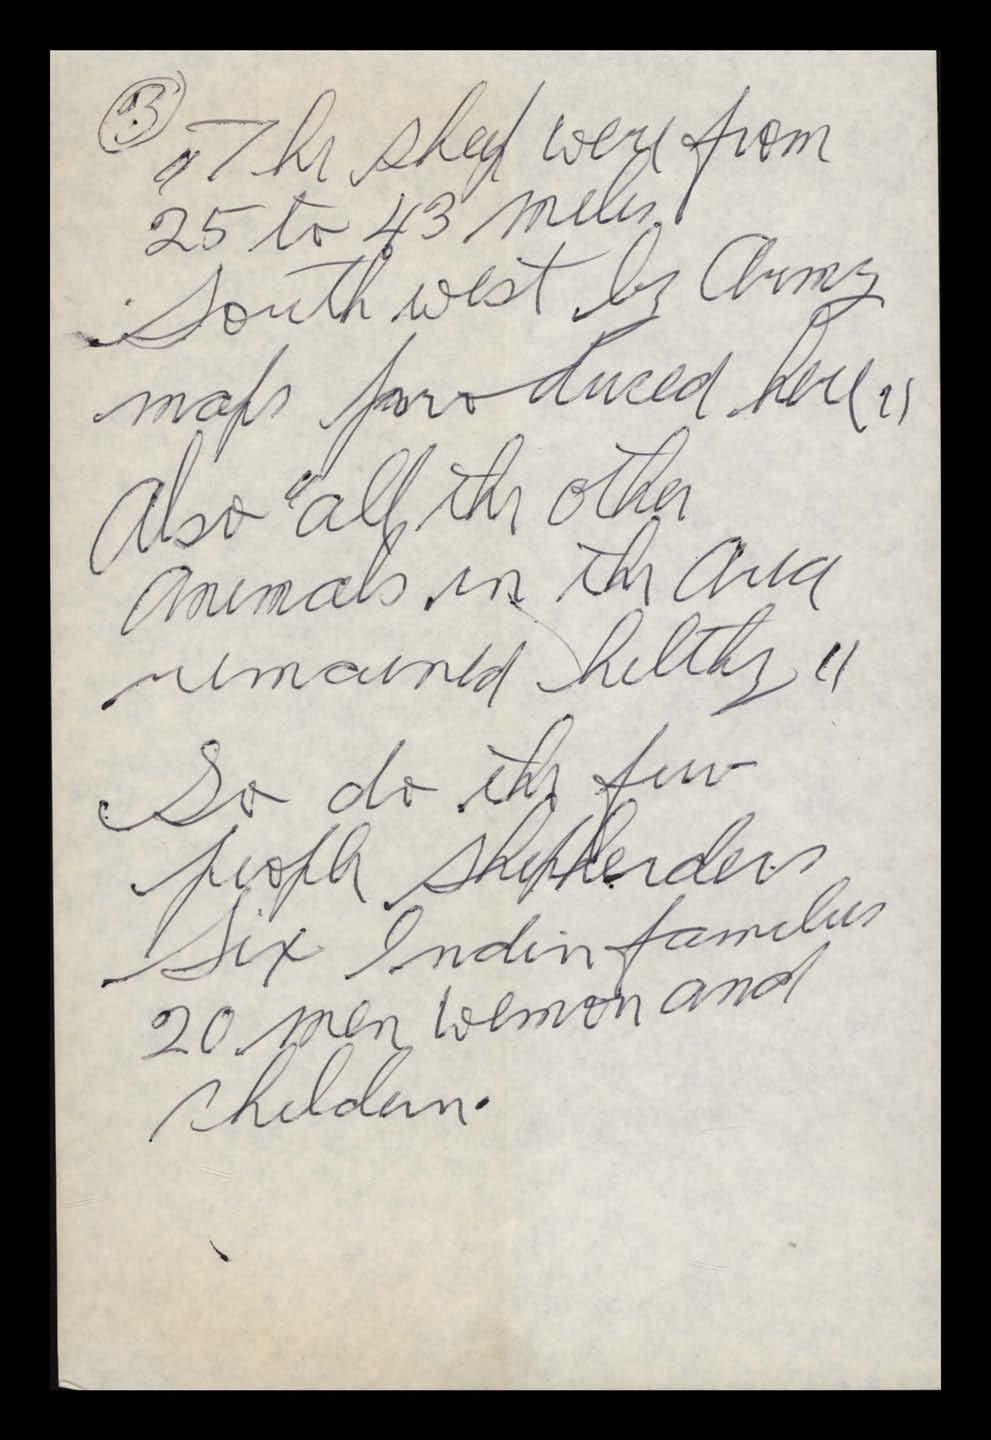 3
"The sheep were from
25 to 43 miles
South west by Army
maps produced here"
Also "all the other
animals in the area
remained helthy"
So do the few
people shepherders
Six Indin families
20 men wemon and
childern.